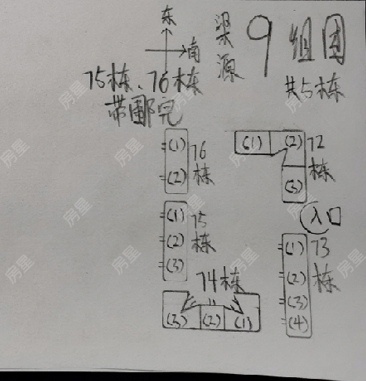 东
南
梁源
9组团
共5栋
75栋、76栋
带围院
(1)
(2)
76栋
(1) (2)
(3)
72栋
入口
(1)
(2)
(3)
75栋
(1)
(2)
(3)
(4)
73栋
74栋
(3) (2) (1)
房星